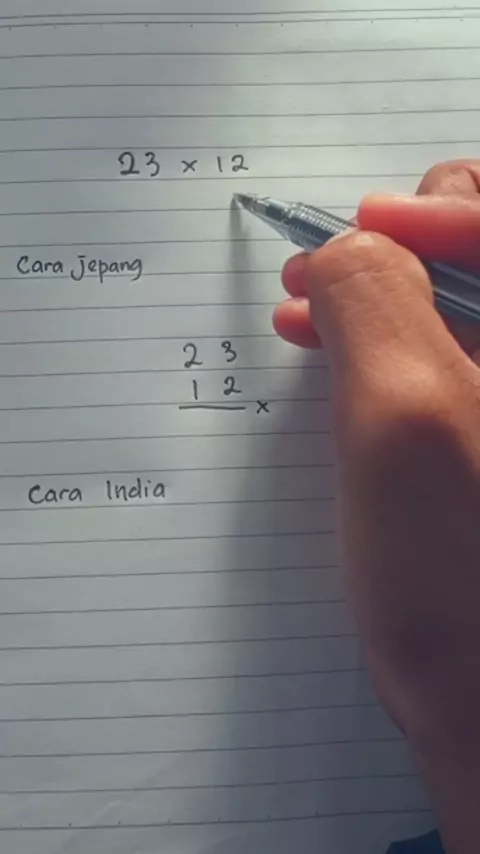 23 x 12
Cara Jepang
2 3
1 2
x
Cara India